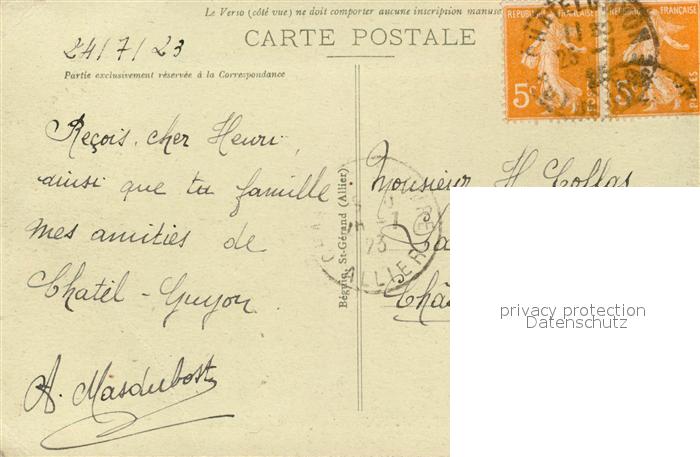 Le Verso (côté vue) ne doit comporter aucune inscription manus
CARTE POSTALE
24/7/23
Partie exclusivement réservée à la Correspondance
RÉPUBLIQUE FRANÇAISE
5c
POSTES
Reçois, cher Henri,
ainsi que ta famille
mes amitiés de
Chatel-Guyon.
A. Masdubost
Béguin, St-Gérand (Allier)
ALLIER
23
Monsieur H Collas
privacy protection
Datenschutz